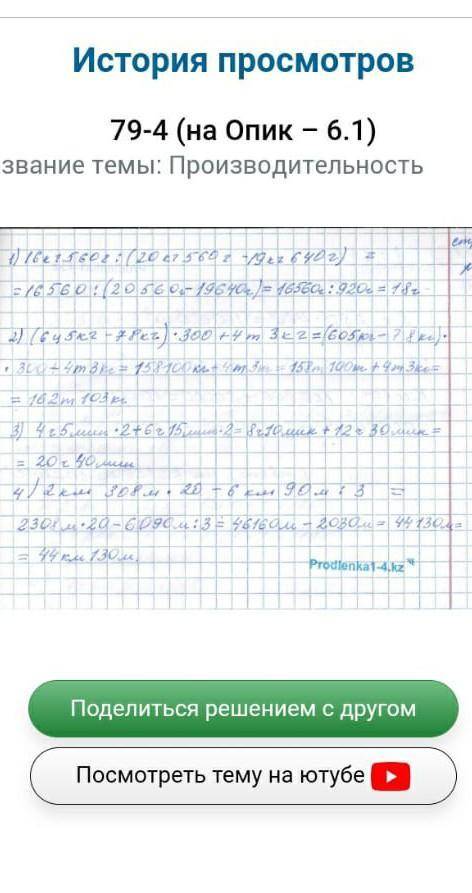 История просмотров
79-4 (на Опик – 6.1)
звание темы: Производительность
1) 16кг560г : (20кг560г - 19кг640г) =
= 16560 : (20560г - 19640г) = 16560г : 920г = 18г
2) (6ц5кг - 78кг) · 300 + 4т 3кг = (605кг - 78кг) ·
· 300 + 4т3кг = 158100кг + 4т3т = 158т100т + 4т3кг =
= 162т 103кг
3) 4г5мин · 2 + 6г15мин · 2 = 8г10мин + 12г30мин =
= 20г40мин
4) 2км 308м · 20 - 6км 90м : 3 =
2308м · 20 - 6090м : 3 = 46160м - 2030м = 44130м =
= 44км130м.
Prodlenka1-4.kz
Поделиться решением с другом
Посмотреть тему на ютубе